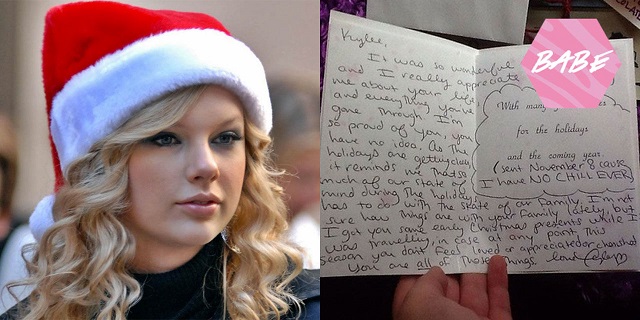 Kuylee,
It was so wonderful
and I really appreciate
me about your life
and everything you've
gone through. I'm
so proud of you, you
have no idea. As the
holidays are getting close,
it reminds me that so
much of our state of
mind during the holidays
has to do with the state of our family. I'm not
sure how things are with your family lately, but
I got you some early Christmas presents while I
was travelling, in case at any point, this
season you don't feel loved or appreciated or cherished
You are all of those things. love
BABE
With many
for the holidays
and the coming year
(sent November 8 cause
I have NO CHILL EVER)